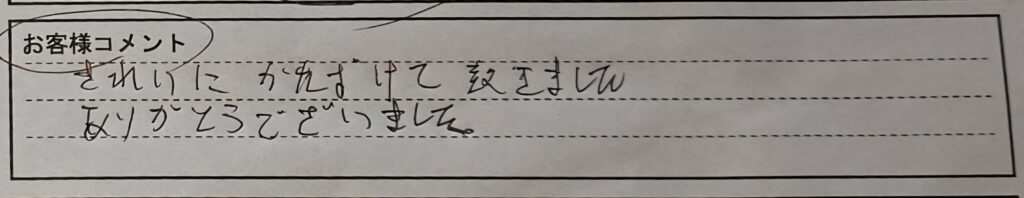 お客様コメント
きれいに かたずけて 頂きました
ありがとうございました。